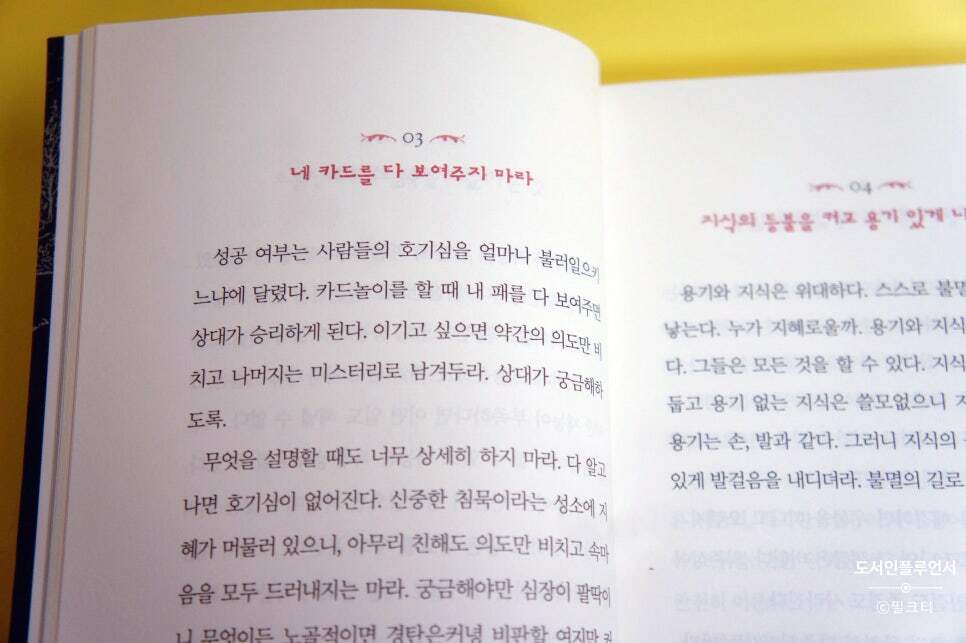 03
네 카드를 다 보여주지 마라
성공 여부는 사람들의 호기심을 얼마나 불러일으키
느냐에 달렸다. 카드놀이를 할 때 내 패를 다 보여주면
상대가 승리하게 된다. 이기고 싶으면 약간의 의도만 비
치고 나머지는 미스터리로 남겨두라. 상대가 궁금해하
도록.
무엇을 설명할 때도 너무 상세히 하지 마라. 다 알고
나면 호기심이 없어진다. 신중한 침묵이라는 성소에 지
혜가 머물러 있으니, 아무리 친해도 의도만 비치고 속마
음을 모두 드러내지는 마라. 궁금해야만 심장이 팔딱이
니 무엇이든 노골적이면 경탄은커녕 비판할 여지만
04
지식의 등불을 켜고 용기 있게
용기와 지식은 위대하다. 스스로 불멸
낳는다. 누가 지혜로울까. 용기와 지식
다. 그들은 모든 것을 할 수 있다. 지식
둡고 용기 없는 지식은 쓸모없으니 지
용기는 손, 발과 같다. 그러니 지식의
있게 발걸음을 내디뎌라. 불멸의 길로
도서인플루언서
ⓒ밀크티